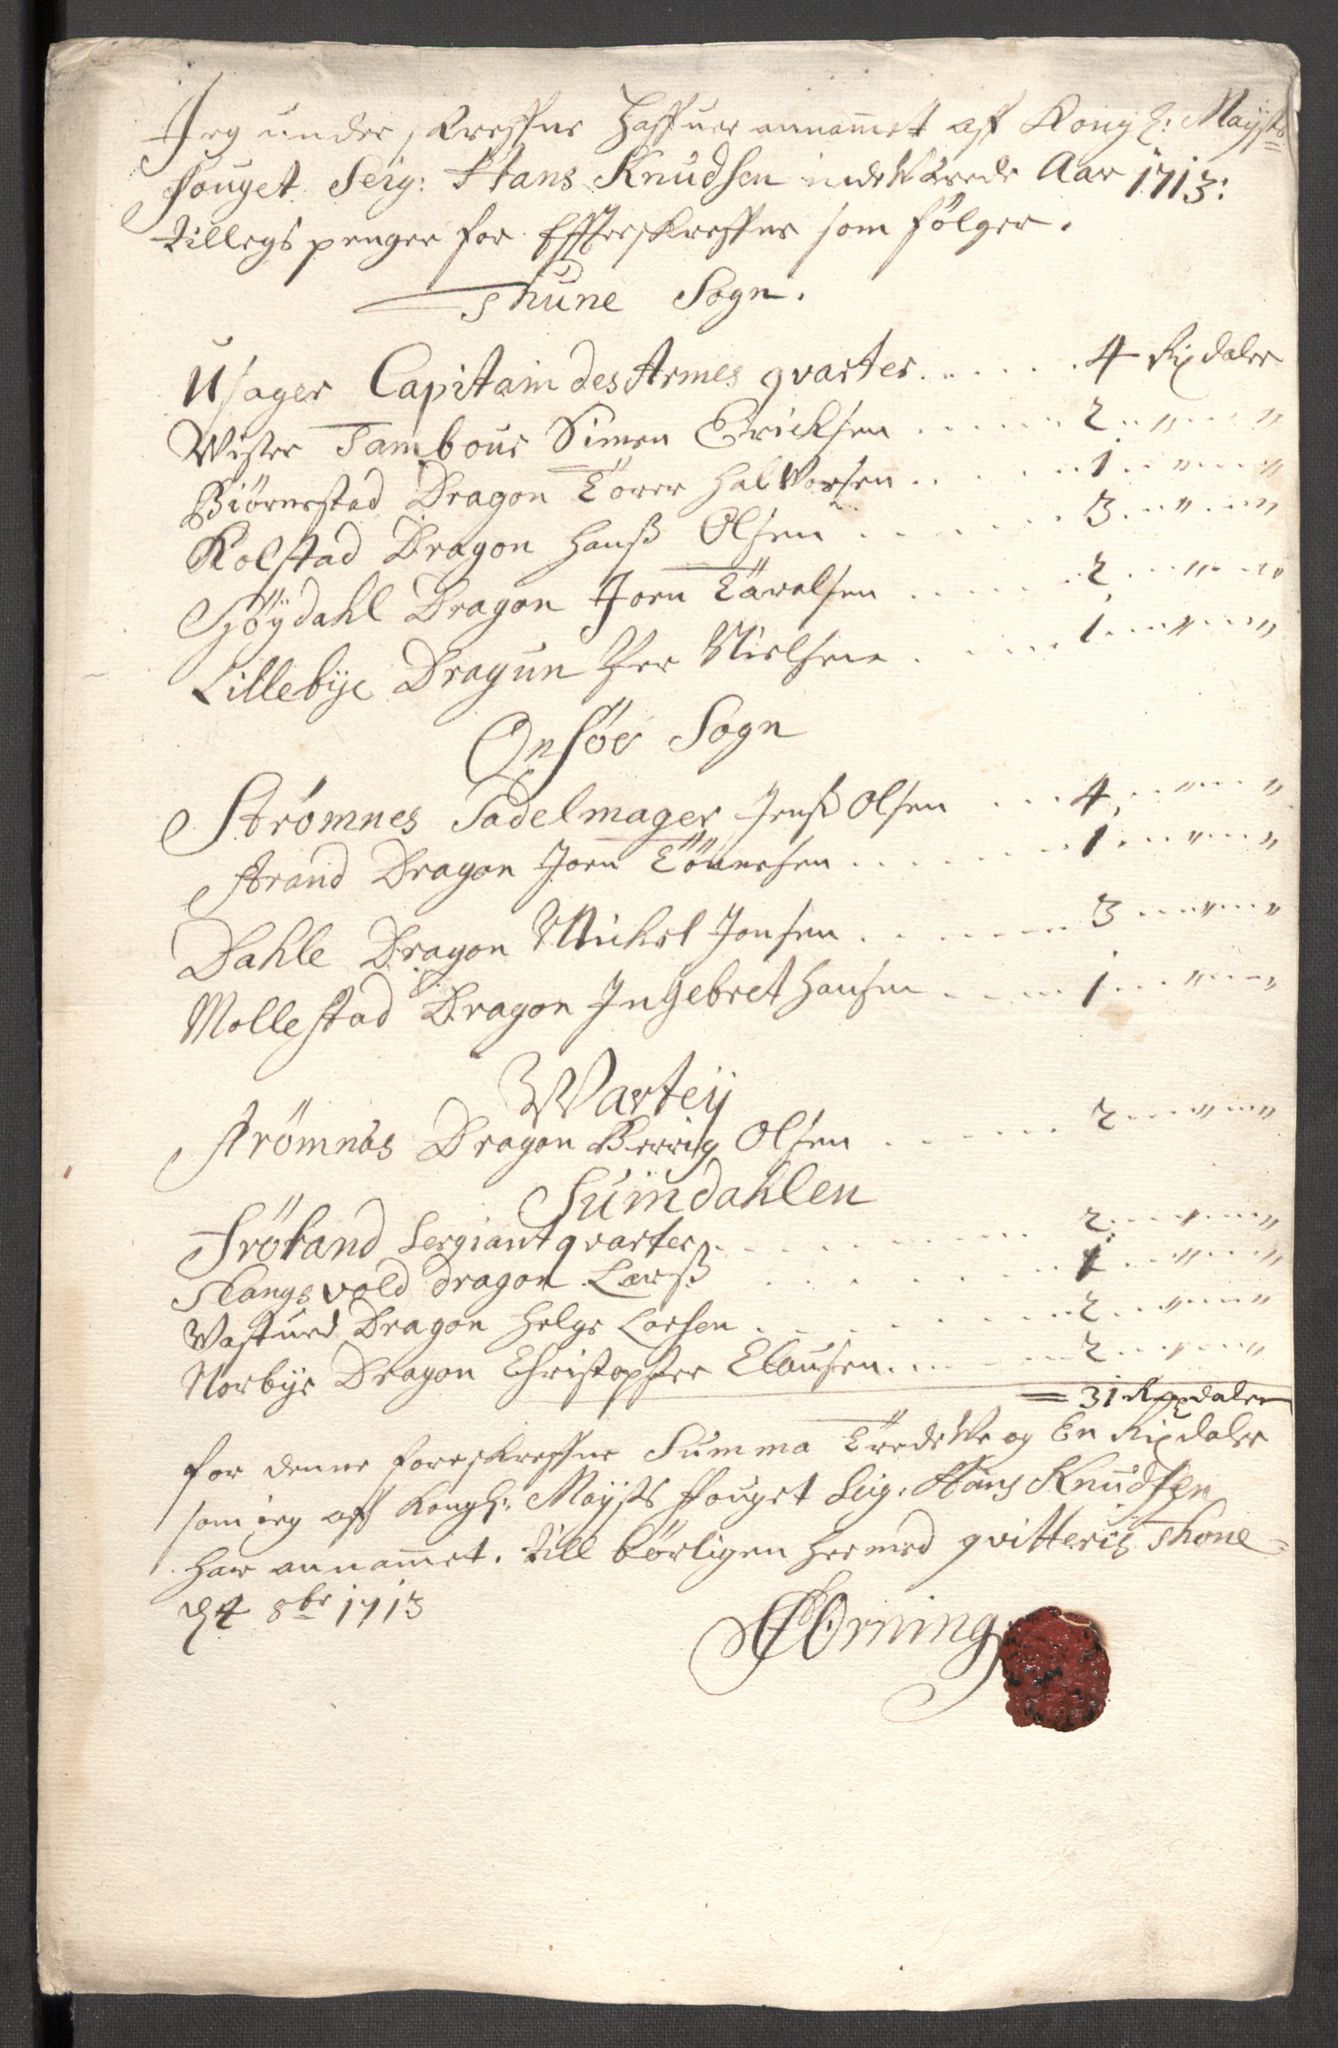 Jeg under skreffne Haffuer annammet aff Kongl: Mayists
fouget Seig: Hans Knudsen indeværede Aar 1713:
tillegs penger for Effterskreffne som følger.
Thune Sogn.
Usager Capitain des Armes qvarter ...... 4 Rixdaler
Wister Tambour Simen Ericksen ...... 2 " "
Biørnestad Dragon Torer Halvorsen ...... 1 " "
Kolstad Dragon Hanß Olsen ...... 3 " "
Høydahl Dragon Joen Taralsen ...... 2 " "
Lillebye Dragun Per Nielsen ...... 1 " "
Onsøe Sogn
Strømnes Sadelmager Jenß Olsen ...... 4 " "
Strand Dragon Joen Tönnesen ...... 1 " "
Dahle Dragon Michel Jonsen ...... 3 " "
Mollestad Dragon Ingebret Hansen ...... 1 " "
Warteij
Strømnæs Dragon Olsen ...... 2 " "
Suindahlen
Frøland Sergiant qvarter ...... 2 " "
Slangsvold dragon Larß ...... 1 " "
Dragon Helge Larsen ...... 2 " "
Norbye Dragon Christopher Clausen ...... 2 " "
= 31 Rixdaler
for denne foreskreffne Summa Tredeve og En Rixdaler
som ieg aff Kongl: Mayists fouget Seig: Hans Knudsen
har annammet. till børligen hermed qvitteris Thone
d 4 8br 1713
Horning